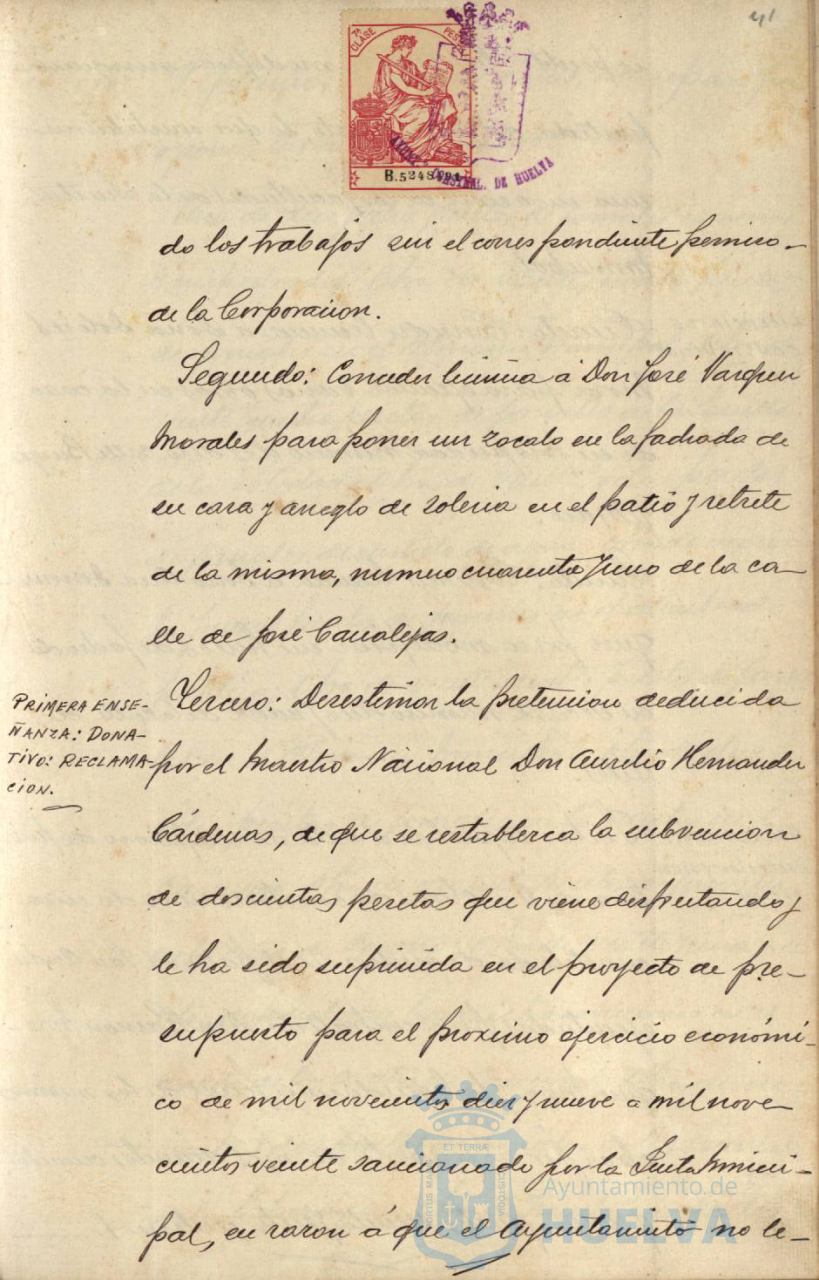 41
7ª CLASE
PESE
B.5248
CONSTNAL. DE HUELVA
do los trabajos sin el correspondiente permiso-
de la Corporacion.
Segundo: Conceder licencia á Don José Vazquez
Morales para poner un zocalo en la fachada de
su casa y arreglo de soleria en el patio y retrete
de la misma, numero cuarenta y uno de la ca-
lle de José Canalejas.
PRIMERA ENSE-
ÑANZA: DONA-
TIVO: RECLAMA-
CION.
Tercero: Desestimar la pretension deducida
por el Maestro Nacional Don Aurelio Hernandez
Cárdenas, de que se restablezca la subvencion
de doscientas pesetas que viene disfrutando y
le ha sido suprimida en el proyecto de pre-
supuesto para el proximo ejercicio económi-
co de mil novecientos diez y nueve a mil nove
cientos veinte sancionado por la Junta Munici-
pal, en razon á que el Ayuntamiento no le-
ET TERRÆ
CUSTODIA
Ayuntamiento de
HUELVA